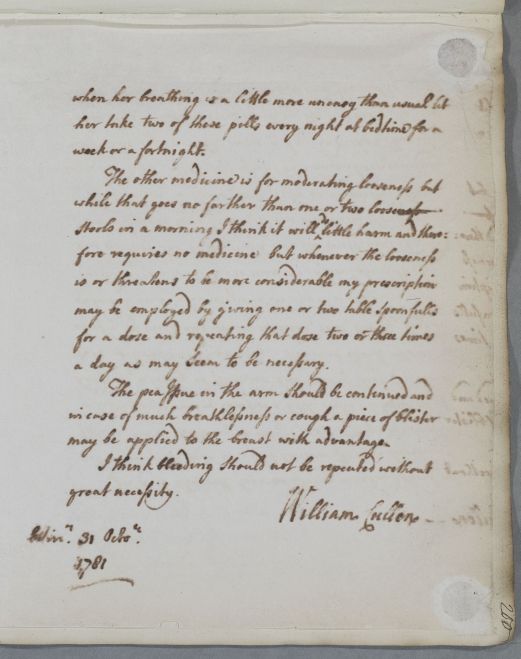 when her breathing is a little more uneasy than usual let
her take two of these pills every night at bedtime for a
week or a fortnight.
The other medicine is for moderating looseness but
while that goes no farther than one or two loosness
stools in a morning I think it will do little harm and there:
fore requires no medicine but whenever the looseness
is or threatens to be more considerable my prescription
may be employed by giving one or two table spoonfulls
for a dose and repeating that dose two or three times
a day as may seem to be necessary.
The pea Issue in the arm should be continued and
in case of much breathlessness or cough a piece of blister
may be applied to the breast with advantage.
I think bleeding should not be repeated without
great necessity.
William Cullen
Edinr. 31 Octobr.
1781
260